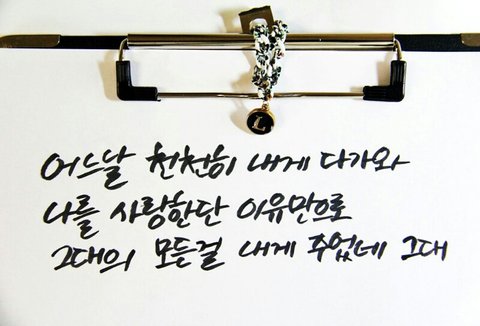 L
어느날 천천히 내게 다가와
나를 사랑한단 이유만으로
그대의 모든걸 내게 주었네 그대